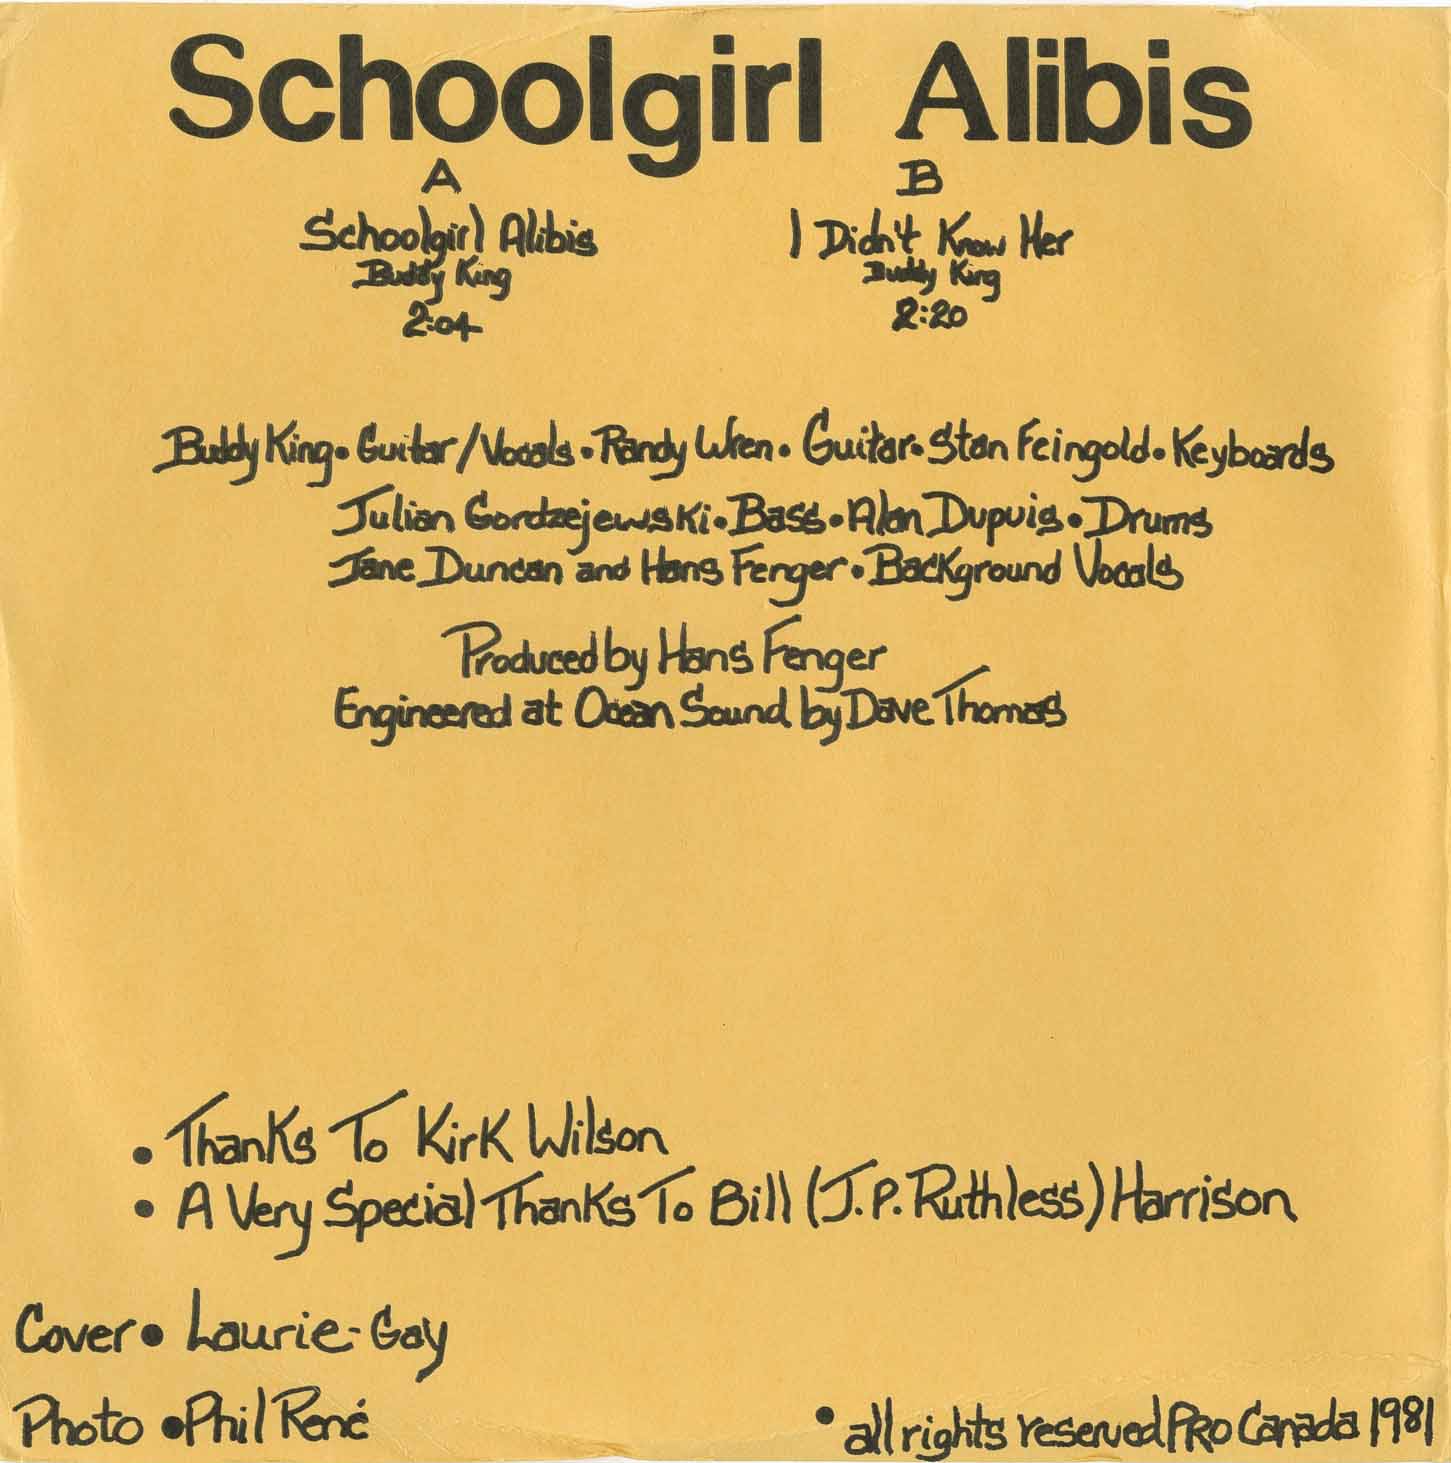 Schoolgirl Alibis
A B
Schoolgirl Alibis I Didn't Know Her
Buddy King Buddy King
2:04 2:20
Buddy King • Guitar/Vocals • Randy Wren • Guitar • Stan Feingold • Keyboards
Julian Gordzejewski • Bass • Alan Dupuis • Drums
Jane Duncan and Hans Fenger • Background Vocals
Produced by Hans Fenger
Engineered at Ocean Sound by Dave Thomas
• Thanks To Kirk Wilson
• A Very Special Thanks To Bill (J.P. Ruthless) Harrison
Cover • Laurie-Gay
Photo • Phil René
• all rights reserved PRO Canada 1981